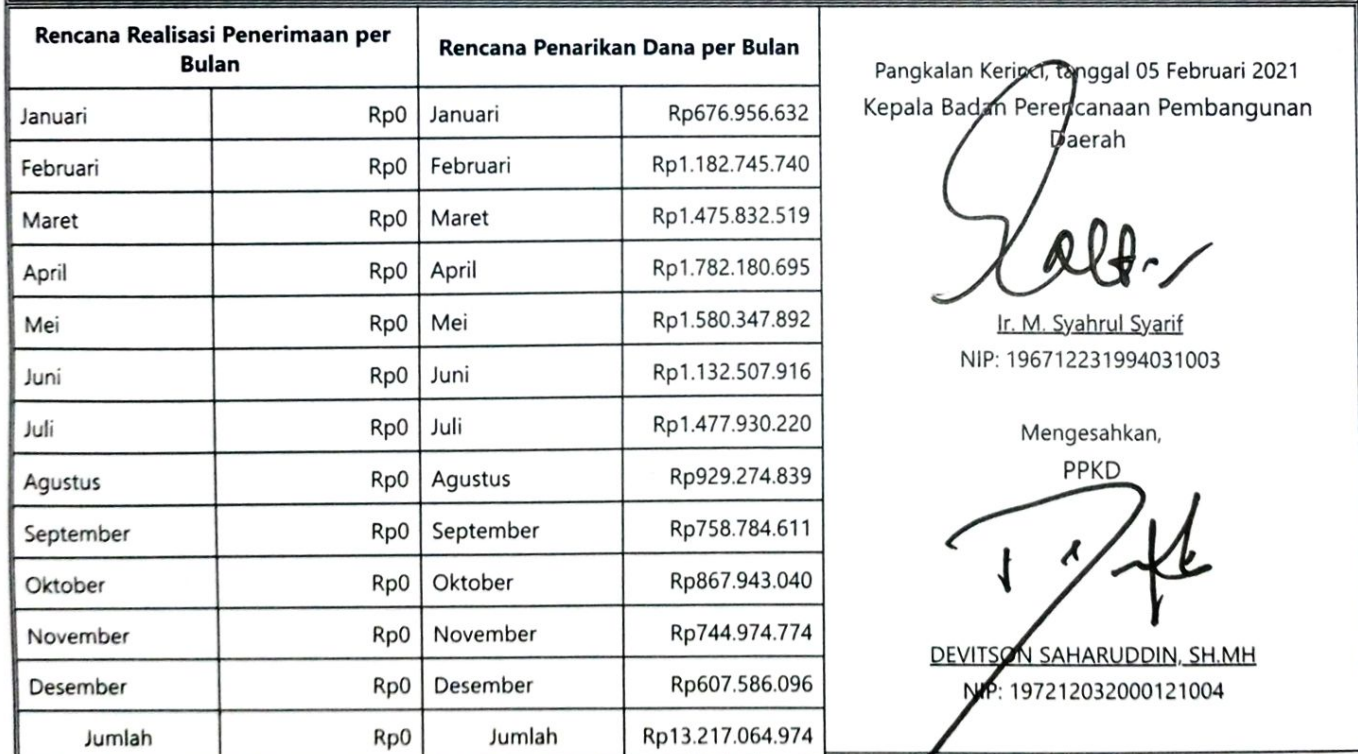 Rencana Realisasi Penerimaan per
Bulan
Rencana Penarikan Dana per Bulan
Januari Rp0 Januari Rp676.956.632
Februari Rp0 Februari Rp1.182.745.740
Maret Rp0 Maret Rp1.475.832.519
April Rp0 April Rp1.782.180.695
Mei Rp0 Mei Rp1.580.347.892
Juni Rp0 Juni Rp1.132.507.916
Juli Rp0 Juli Rp1.477.930.220
Agustus Rp0 Agustus Rp929.274.839
September Rp0 September Rp758.784.611
Oktober Rp0 Oktober Rp867.943.040
November Rp0 November Rp744.974.774
Desember Rp0 Desember Rp607.586.096
Jumlah Rp0 Jumlah Rp13.217.064.974
Pangkalan Kerinci, tanggal 05 Februari 2021
Kepala Badan Perencanaan Pembangunan
Daerah
Ir. M. Syahrul Syarif
NIP: 196712231994031003
Mengesahkan,
PPKD
DEVITSON SAHARUDDIN, SH.MH
NIP: 197212032000121004